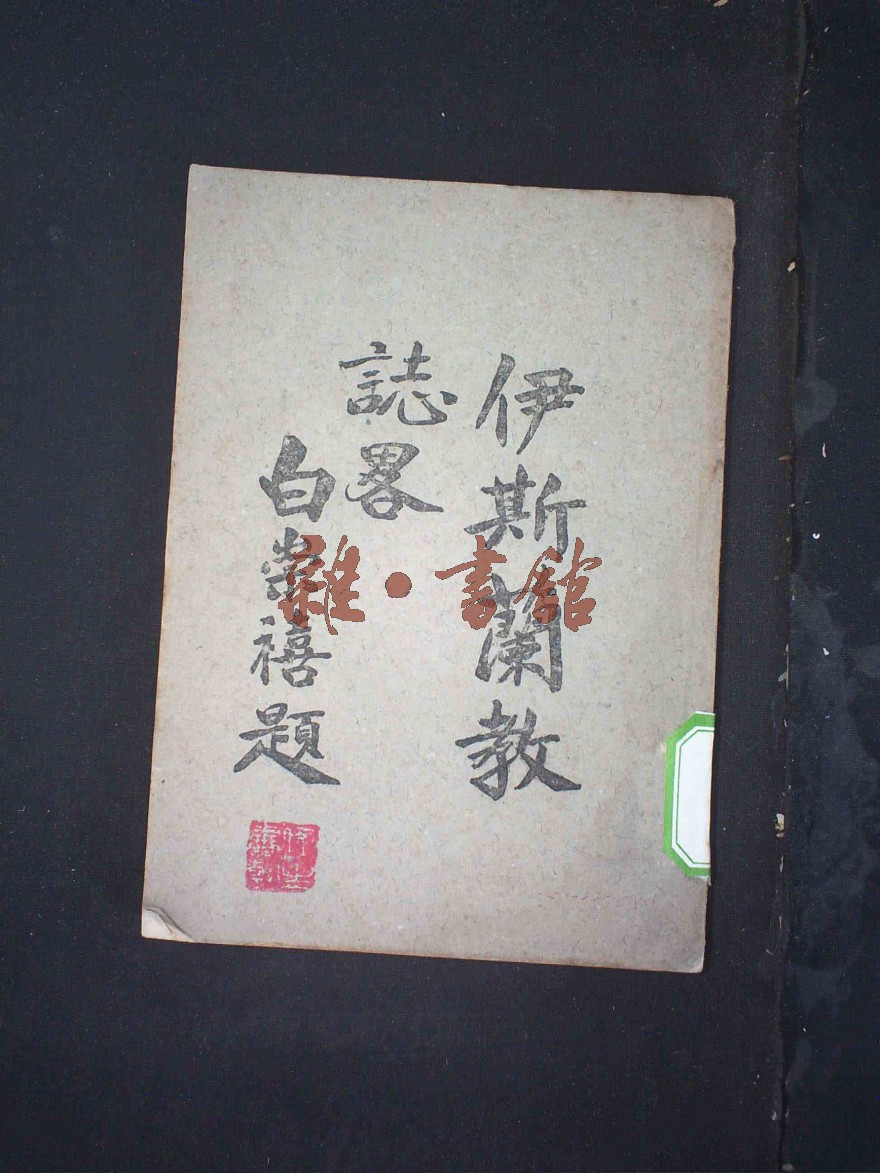 伊斯蘭教
誌畧
白崇禧題
雜·書館